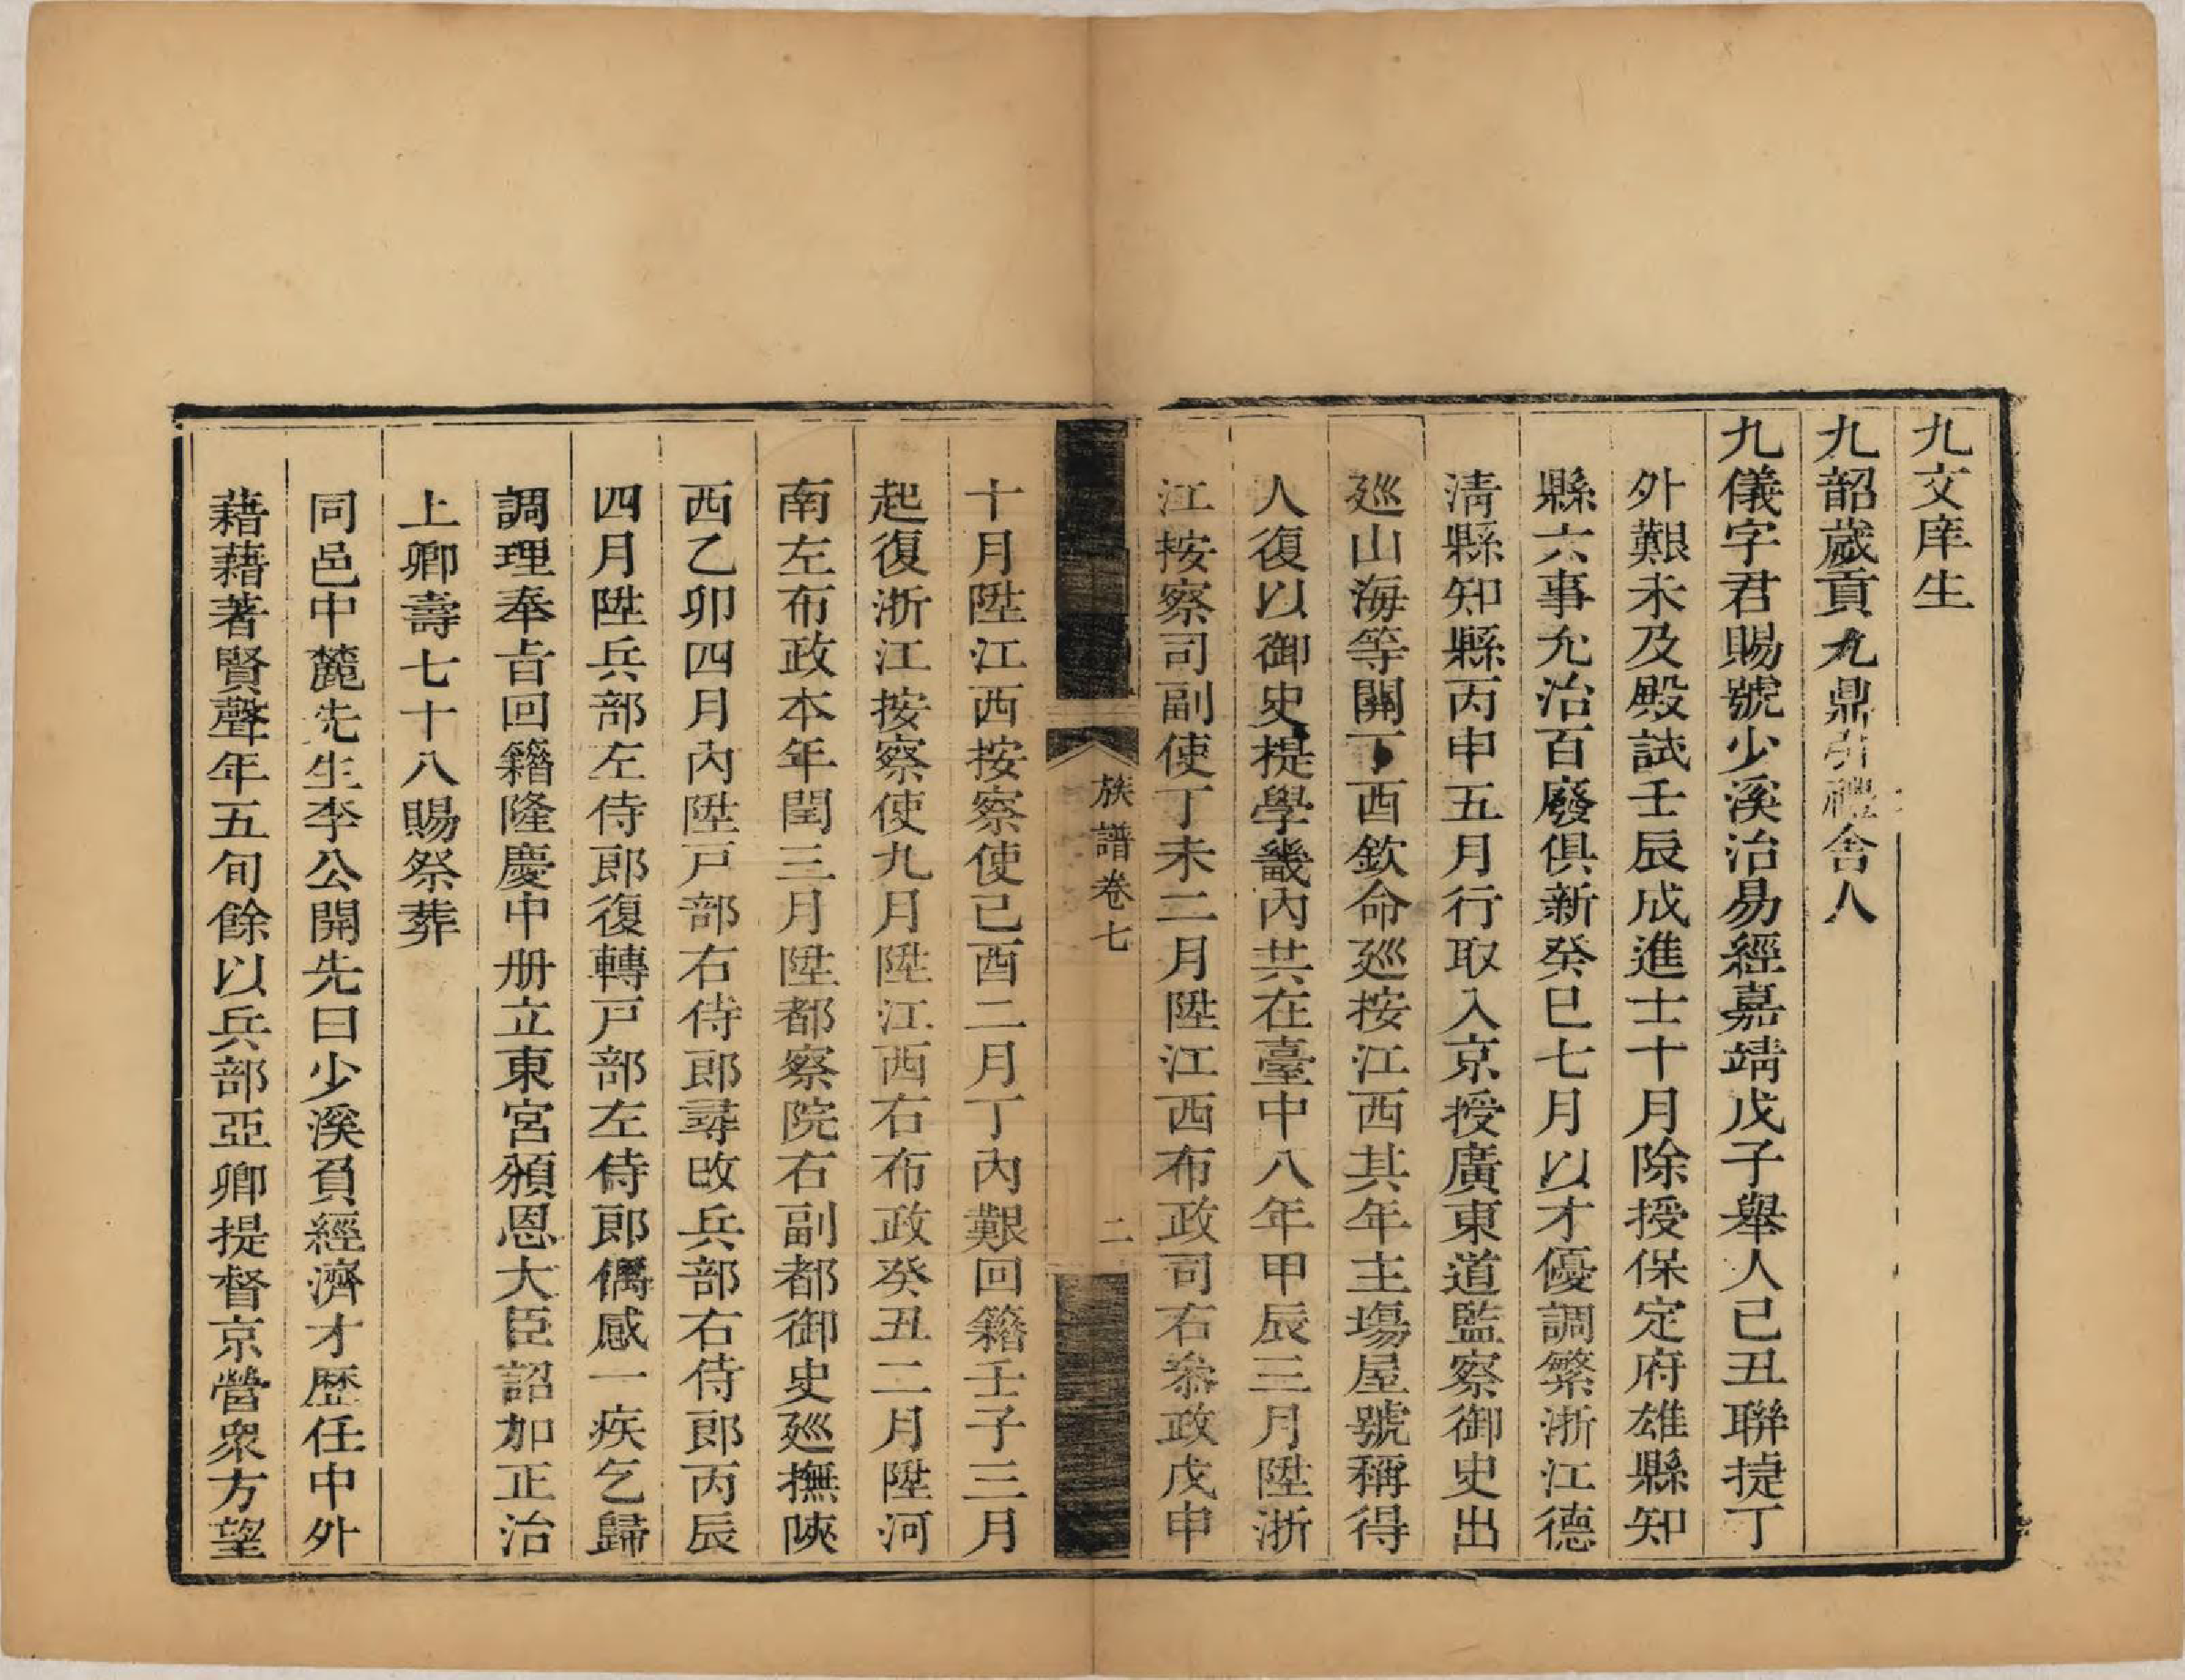 九文庠生
九韶歲貢九鼎引禮舍人
九儀字君賜號少溪治易經嘉靖戊子舉人己丑聯捷丁
外艱未及殿試壬辰成進士十月除授保定府雄縣知
縣六事允治百廢俱新癸巳七月以才優調繁浙江德
清縣知縣丙申五月行取入京授廣東道監察御史出
廵山海等關丁酉欽命廵按江西其年主場屋號稱得
人復以御史提學畿內共在臺中八年甲辰三月陞浙
江按察司副使丁未二月陞江西布政司右叅政戊申
族譜卷七
二
十月陞江西按察使己酉二月丁內艱回籍壬子三月
起復浙江按察使九月陞江西右布政癸丑二月陞河
南左布政本年閏三月陞都察院右副都御史廵撫陝
西乙卯四月內陞戸部右侍郎尋改兵部右侍郎丙辰
四月陞兵部左侍郎復轉戸部左侍郎偶感一疾乞歸
調理奉㫖回籍隆慶中册立東宮頒恩大臣詔加正治
上卿壽七十八賜祭葬
同邑中麓先生李公開先曰少溪負經濟才歷任中外
藉藉著賢聲年五旬餘以兵部亞卿提督京營衆方望